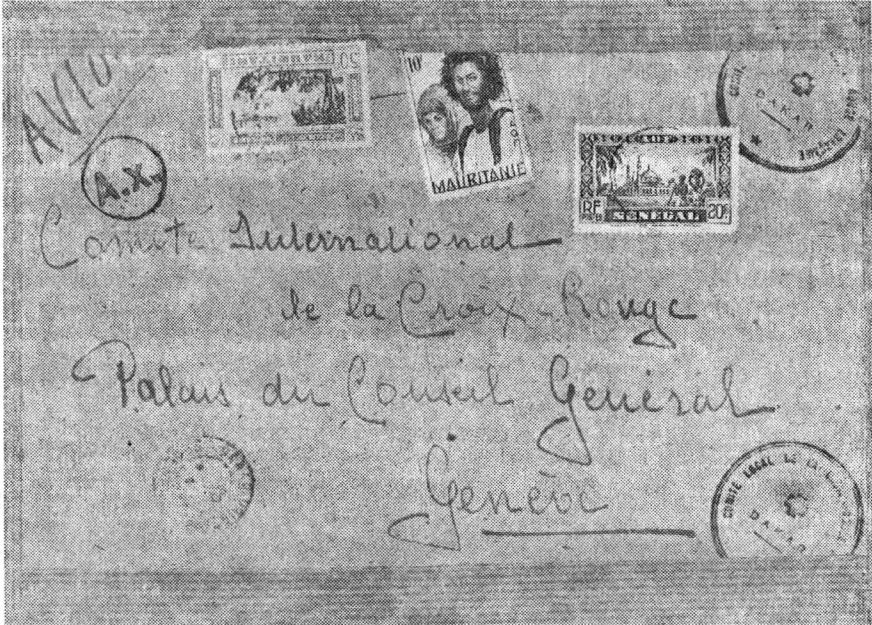 AVIO
50
10f
MAURITANIE
RF
SÉNÉGAL
20f
DAKAR
A.X.
Comité International
de la Croix-Rouge
Palais du Conseil Général
Genève
COMITÉ LOCAL DE LA
DAKAR